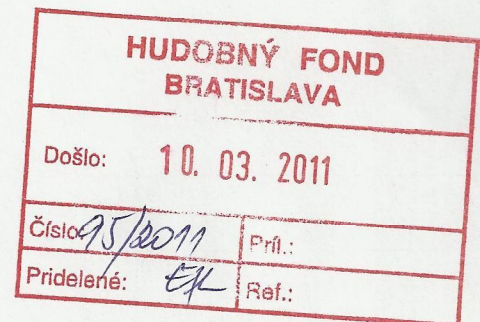 HUDOBNÝ FOND
BRATISLAVA
Došlo: 10. 03. 2011
Číslo: 95/2011 Príl.:
Pridelené: Ref.: